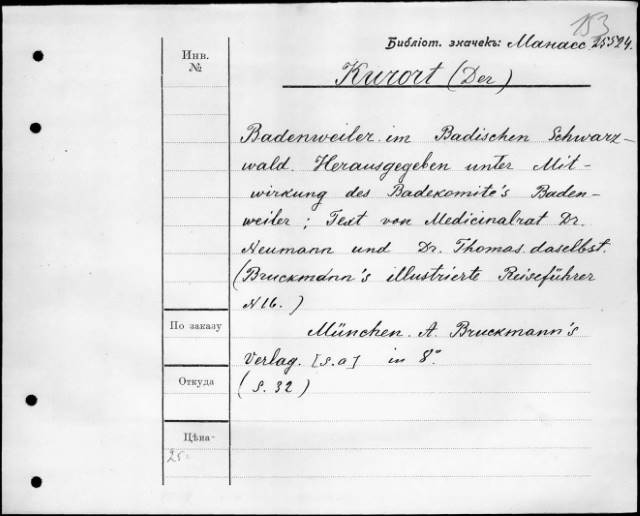 153
Библіот. значекъ: Манасс 25524.
Инв.
№
Kurort (Der)
Badenweiler im Badischen Schwarz-
wald. Herausgegeben unter Mit-
wirkung des Badekomite's Baden-
weiler; Text von Medicinalrat Dr.
Neumann und Dr. Thomas daselbst.
(Bruckmann's illustrierte Reiseführer
N 16.)
По заказу
München. A. Bruckmann's
Verlag. [s.a] in 8°.
Откуда
(S. 32)
Цѣна
25